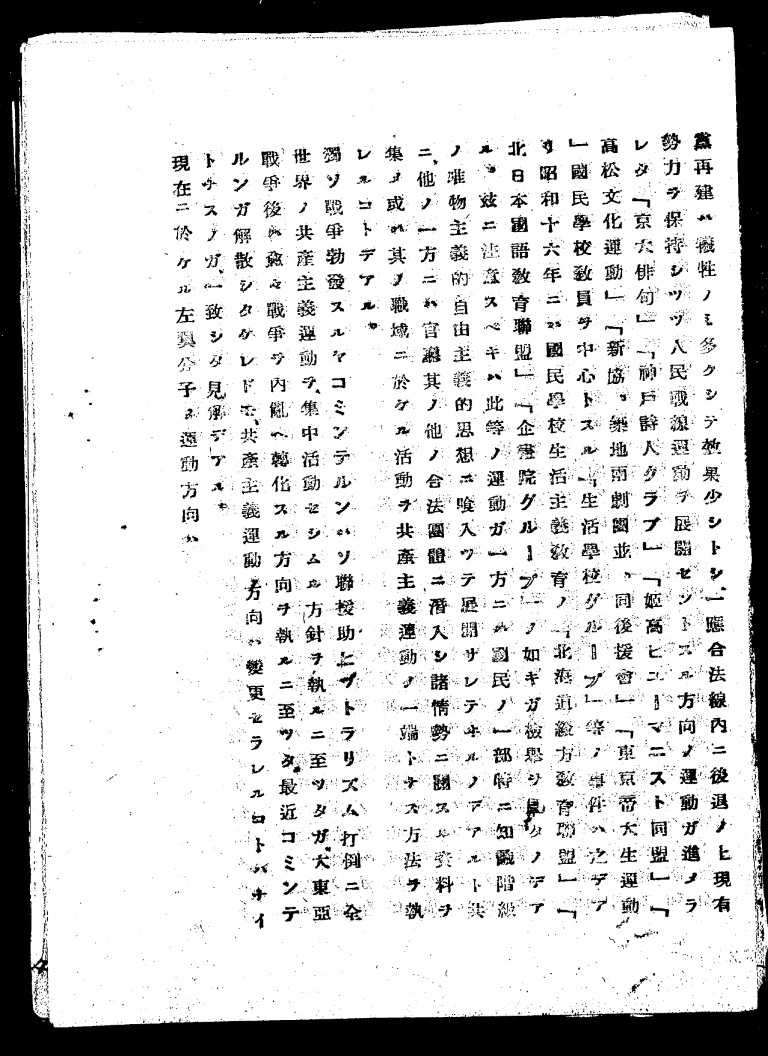 黨再建ハ犧牲ノミ多クシテ效果少シトシ一應合法線內ニ後退ノヒ現有
勢力ヲ保持シツツ人民戰線運動ヲ展開セントスル方向ノ運動ガ進メラ
レタ「京大俳句」「神戶詩人クラブ」「姬高ヒユーマニスト同盟」「
高松文化運動」「新協、築地兩劇團並、同後援會」「東京帝大生運動
」國民學校敎員ヲ中心トスル「生活學校グループ」等ノ事件ハ之デア
リ昭和十六年ニハ國民學校生活主義敎育ノ「北海道綴方敎育聯盟」「
北日本國語敎育聯盟」「企畫院グループ」ノ如キガ檢擧ヲ見タノデア
ル。玆ニ注意スベキハ此等ノ運動ガ一方ニハ國民ノ一部特ニ知識階級
ノ唯物主義的自由主義的思想ニ喰入ツテ展開サレテヰルノデアルト共
ニ、他ノ一方ニハ官廳其ノ他ノ合法團體ニ潛入シ諸情勢ニ關スル資料ヲ
集メ或ハ其ノ職域ニ於ケル活動ヲ共產主義運動ノ一端トナス方法ヲ執
レルコトデアル。
獨ソ戰爭勃發スルヤコミンテルンハソ聯援助ヒツトラリズム打倒ニ全
世界ノ共產主義運動ヲ、集中活動セシムル方針ヲ執ルニ至ツタガ、大東亞
戰爭後ハ愈々戰爭ヲ內亂ヘ轉化スル方向ヲ執ルニ至ツタ最近コミンテ
ルンガ解散シタケレドモ、共產主義運動ノ方向ハ變更セラレルコトハナイ
トナスノガ、一致シタ見解デアル。
現在ニ於ケル左翼分子ノ運動方向ハ